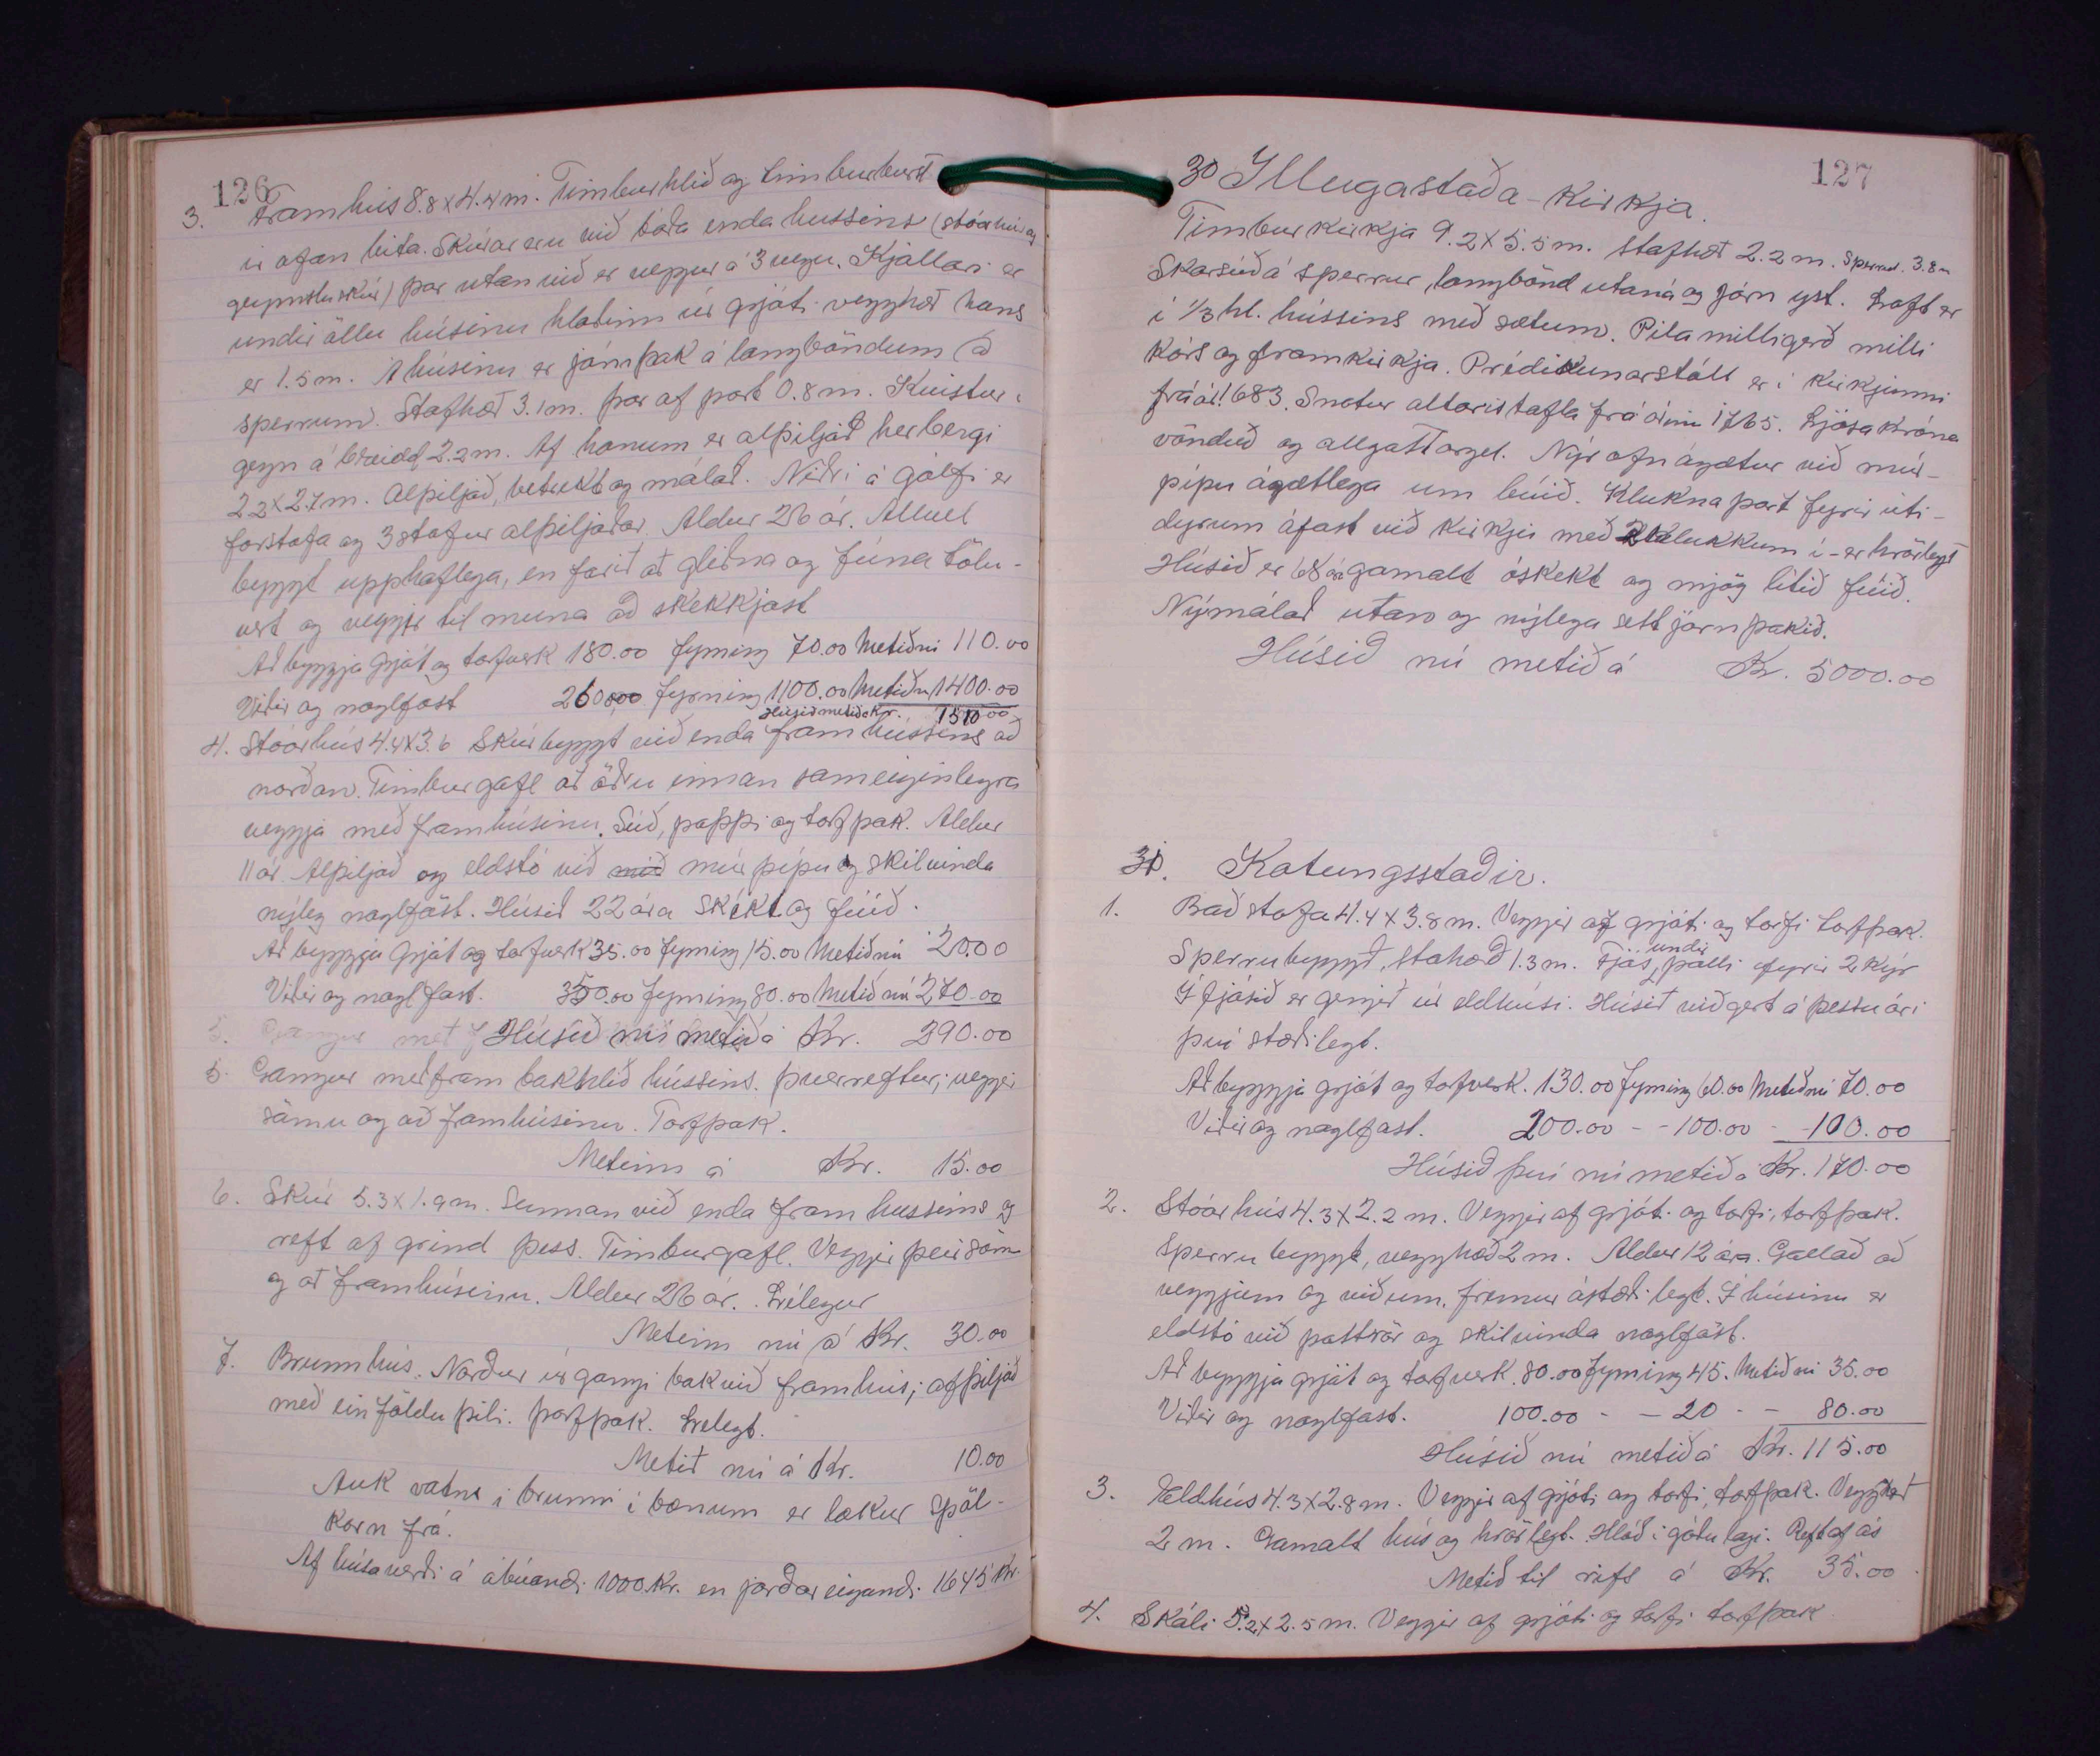 126
3. Framhús 8.8 x 4.4 m. Timburhlið og timburburst
er ofan bita. Skúrar eru við báða enda hussins (stóarhús og
geymsluskúr) þar utan við er veggur á 3 vegu. Kjallari er
undir öllu húsinu hlaðinn úr grjóti vegghæð hans
er 1.5 m. Á húsinu er járnþak á langböndum (á
sperrum). Stafhæð 3.1 m. þar af port 0.8 m. Kvistur í
gegn á breidd 2.2 m. Af honum er alþiljað herbergi
2.2 x 2.7 m. Alþiljað, betrekt og málað. Niðri á gólfi er
forstofa og 3 stofur alþiljaðar. Aldur 26 ár. Allvel
byggt upphaflega, en farið að gliðna og fúna tölu-
vert og veggir til muna að skekkjast
Að byggja grjót og torfverk 180.00 fyrning 70.00 Metið nú 110.00
Viðir og naglfast 2600.00 fyrning 1100.00 Metið nú 1400.00
Húsið metið á Kr. 1510.00
4. Stóarhús 4.4 x 3.6 Skúrbyggt við enda framhússins að
norðan. Timburgafl að öðru innan sameiginlegra
veggja með framhúsinu. Súð, pappi og torfþak. Aldur
11 ár. Alþiljað og eldstó við múrpípu og skilvinda
nýleg naglföst. Húsið 22 ára skekt og fúið.
Að byggja grjót og torfverk 35.00 fyrning 15.00 Metið nú 20.00
Viðir og naglfast. 350.00 fyrning 80.00 Metið nú 270.00
5. Gangur með f Húsið nú metið á Kr. 290.00
5. Gangur meðfram bakhlið hússins. Þverreftur; veggir
sömu og að framhúsinu. Torfþak.
Metinn á Kr. 15.00
6. Skúr 5.3 x 1.9 m. Sunnan við enda framhussins og
reft af grind þess. Timburgafl. Veggir þeir sömu
og að framhúsinu. Aldur 26 ár. Lélegur
Metinn nú á Kr. 30.00
7. Brunnhús. Norður úr gangi bakvið framhús; afþiljað
með einföldu þili. Þorfþak. Lélegt.
Metið nú á Kr. 10.00
Auk vatns í brunni í bænum er lækur spöl-
korn frá.
Af húsaverði á ábúandi 1000 Kr. en jarðareigandi 1645 Kr.
127
30 Illugastaða-Kirkja.
Timburkirkja 9.2 x 5.5 m. stafhæð 2.2 m. Sperrur. 3.8 m
Skarsúð á sperrur, langbönd utaná og járn yst. Loft er
í 1/3 hl. hússins með sætum. Pílamilligerð milli
kórs og framkirkja. Prédikunarstóll er í kirkjunni
frá ár. 1683. Snotur altaristafla frá árinu 1765. Ljósakróna
vönduð og allgott orgel. Nýr ofn ágætur við múr-
pípu ágætlega um búið. Kluknaport fyrir úti-
dyrum áfast við kirkju með 2 klukkum í - er hrörlegt
Húsið er 68 ára gamalt óskekt og mjög lítið fúið.
Nýmálað utan og nýlega sett járnþakið.
Húsið nú metið á Kr. 5000.00
31. Kotungsstaðir.
1. Baðstofa 4.4 x 3.8 m. Veggir af grjóti og torfi torfþak.
Sperrubyggð, stahæð 1.3 m. Fjós undir palli fyrir 2 kýr
Í fjósið er gengið úr eldhúsi. Húsið viðgert á þessu ári
því stæðilegt.
Að byggja grjót og torfverk. 130.00 fyrning 60.00 Metið nú 70.00
Viðir og naglfast. 200.00 - - 100.00 - - 100.00
Húsið því nú metið á Kr. 170.00
2. Stóarhús 4.3 x 2.2 m. Veggir af grjóti og torfi, torfþak.
Sperrubyggt, vegghæð 2 m. Aldur 12 ára. Gallað að
veggjum og viðum, fremur óstæðilegt. Í húsinu er
eldstó við pottrör og skilvinda naglföst.
Að byggja grjót og torfverk. 80.00 fyrning 45. Metið nú 35.00
Viðir og naglfast. 100.00 - - 20 - - 80.00
Húsið nú metið á Kr. 115.00
3. Eldhús 4.3 x 2.8 m. Veggir af grjóti og torfi, torfþak. Vegghæð
2 m. Gamalt hús og hrörlegt. Hlóð í góðu lagi. Reft af ás
Metið til rifs á Kr. 35.00
4. Skáli 5.2 x 2.5 m. Veggir af grjóti og torfi torfþak